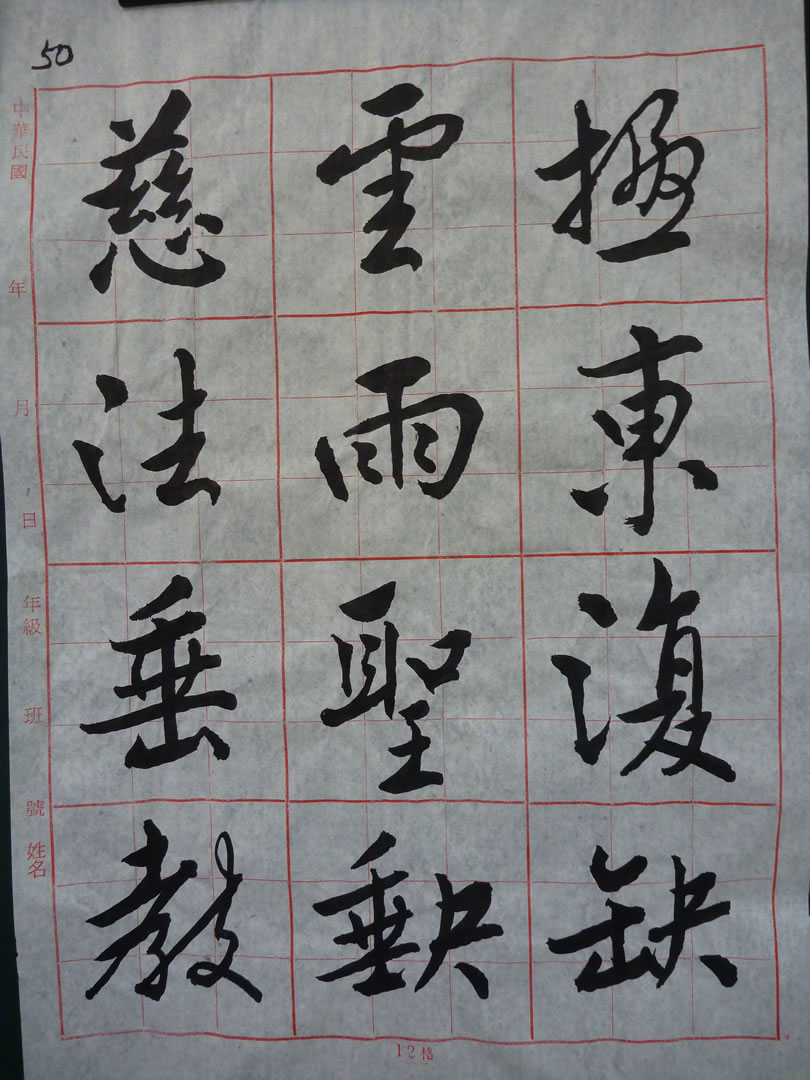 50
慈雲極
法雨東
垂聖復
教𡙇缺
中華民國 年 月 日 年級 班 號 姓名
12格